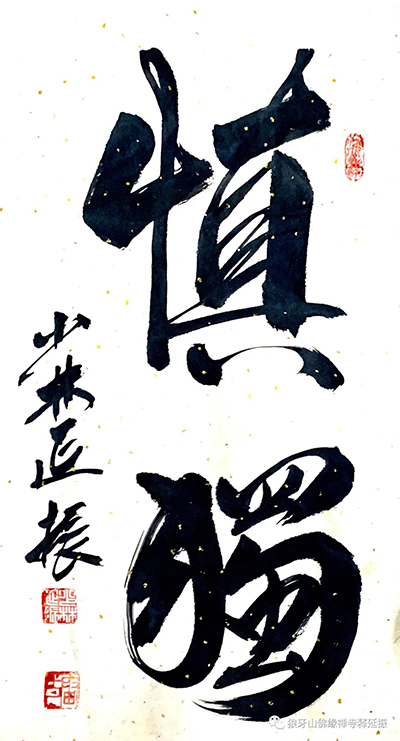 慎獨
少林延振
狼牙山佛缘禅寺释延振